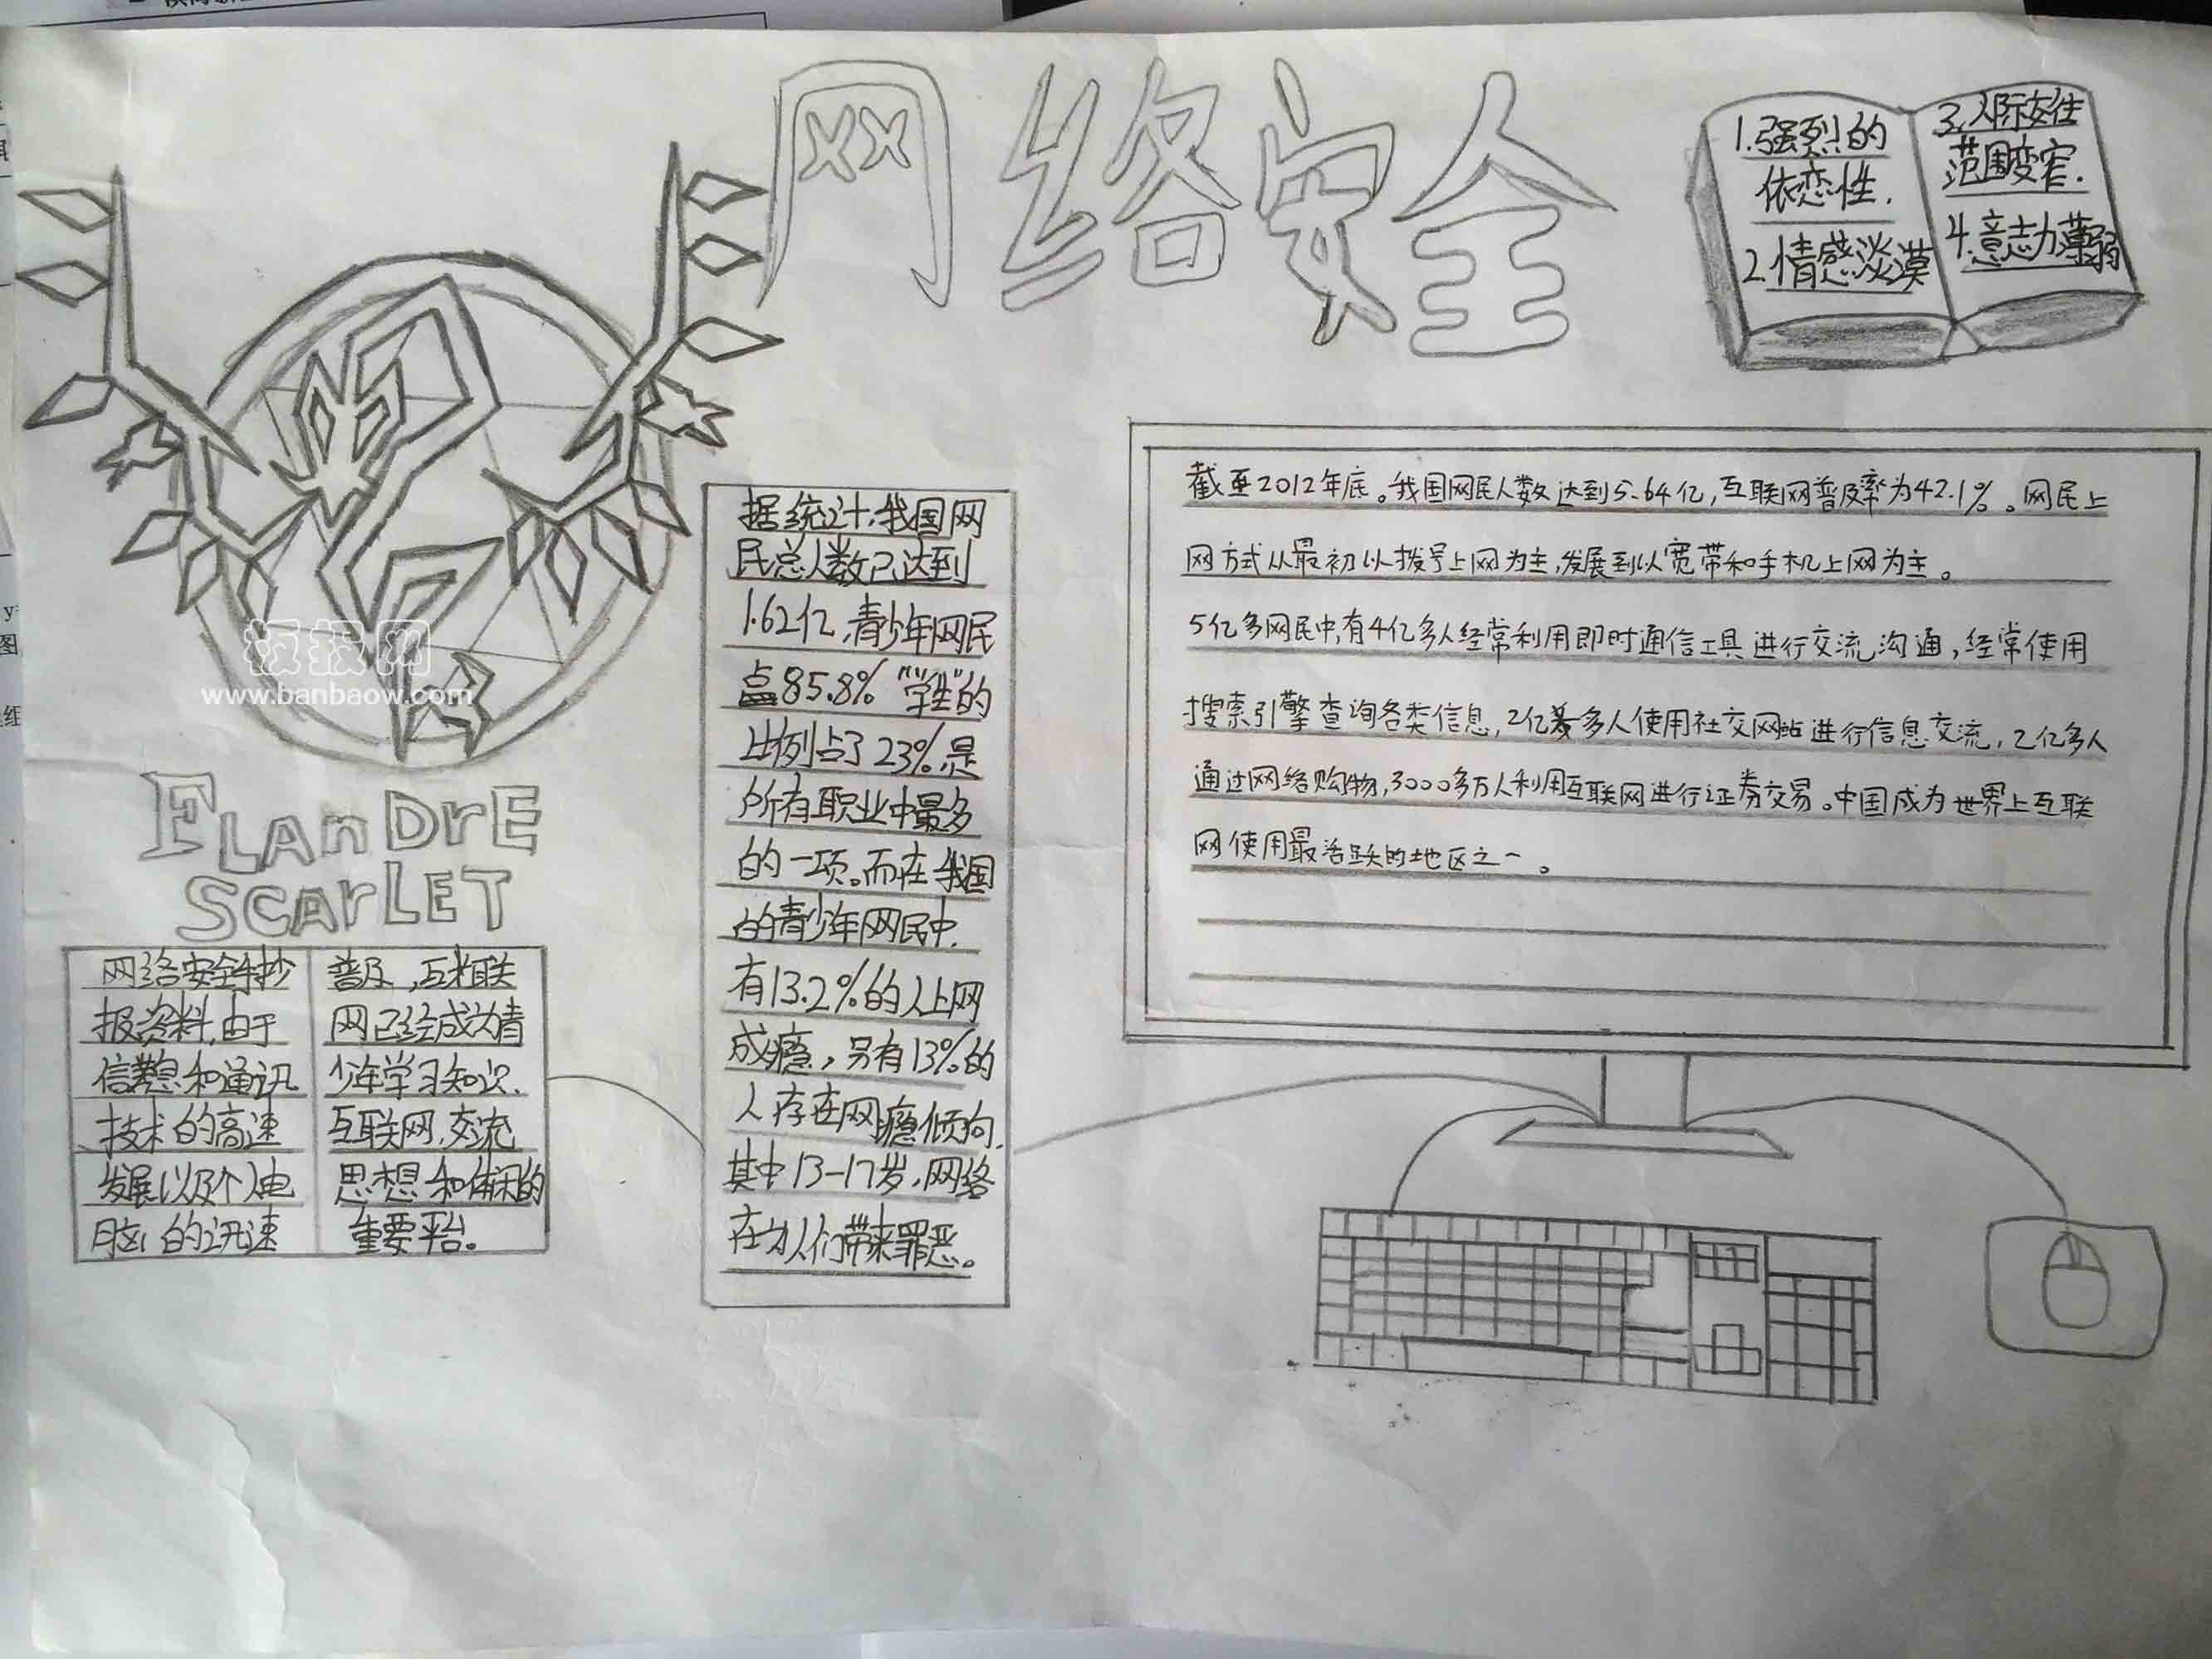 网络安全
1.强烈的
依恋性.
2.情感淡漠
3.人际交往
范围变窄.
4.意志力薄弱
板报网
www.banbaow.com
FLAnDrE
SCArLET
网络安全手抄
报资料,由于
信息和通讯
技术的高速
发展以及个人电
脑的迅速
普及,互联
网已经成为青
少年学习知识.
互联网,交流
思想和休闲的
重要平台。
据统计,我国网
民总人数已达到
1.62亿,青少年网民
占85.8%“学生”的
比例占了23%.是
所有职业中最多
的一项。而在我国
的青少年网民中.
有13.2%的人上网
成瘾,另有13%的
人存在网瘾倾向.
其中13-17岁,网络
在为人们带来罪恶。
截至2012年底。我国网民人数达到5.64亿,互联网普及率为42.1%。网民上
网方式从最初以拨号上网为主,发展到以宽带和手机上网为主。
5亿多网民中,有4亿多人经常利用即时通信工具进行交流沟通,经常使用
搜索引擎查询各类信息,2亿多人使用社交网站进行信息交流,2亿多人
通过网络购物,3000多万人利用互联网进行证券交易。中国成为世界上互联
网使用最活跃的地区之一。